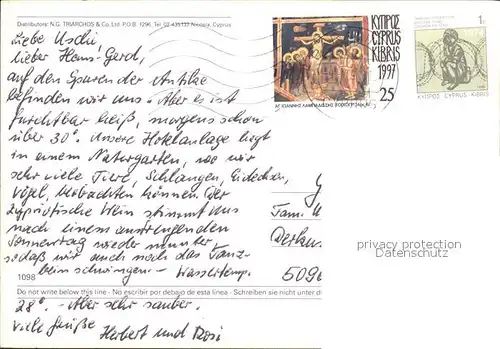 Distributors: N.G. TRIARCHOS & Co. Ltd P.O.B. 1296, Tel. 02-435137 Nicosia, Cyprus
Liebe Uschi,
lieber Hans-Gerd,
auf den Spuren der Antike
befinden wir uns. Aber es ist
furchtbar heiß, morgens schon
über 30°. Unsere Hotelanlage liegt
in einem Naturgarten, wo wir
sehr viele Tiere, Schlangen, Eidechsen,
Vögel, beobachten können. Der
zypriotische Wein stimmt uns
nach einem anstrengenden
Sonnentag wieder munter
sodaß wir auch noch das Tanz-
bein schwingen. – Wassertemp.
1098
Do not write below this line - No escribir por debajo de esta linea - Schreiben sie nicht unter di
28° – Aber sehr sauber.
viele Grüße
Herbert und Rosi
ΚΥΠΡΟΣ
CYPRUS
KIBRIS
1997
25
1c
ΚΥΠΡΟΣ CYPRUS KIBRIS
Fam.
509
protection copyright
Datenschutz